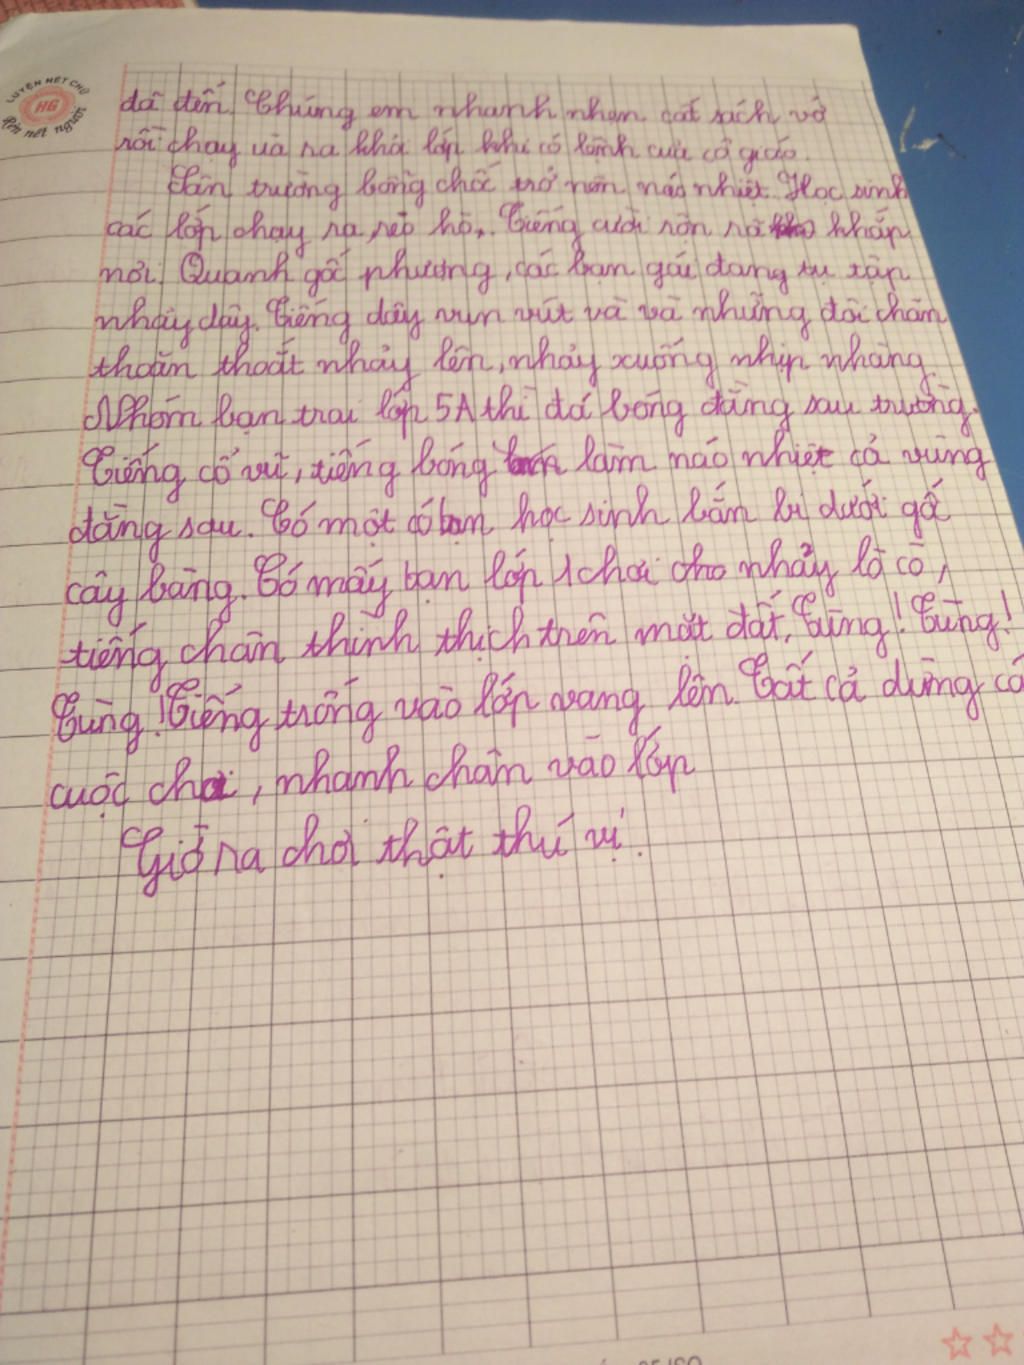 LUYỆN NÉT CHỮ
HG
Rèn nét người
đã đến. Chúng em nhanh nhẹn cất sách vở
rồi chạy uà ra khỏi lớp khi có lệnh của cô giáo.
Sân trường bỗng chốc trở nên náo nhiệt. Học sinh
các lớp chạy ra, reo hò. Tiếng cười rôn rã khắp
nơi. Quanh gốc phượng, các bạn gái đang tụ tập
nhảy dây. Tiếng dây vun vút và và những đôi chân
thoăn thoắt nhảy lên, nhảy xuống nhịp nhàng.
Nhóm bạn trai lớp 5A thì đá bóng đằng sau trường.
Tiếng cổ vũ, tiếng bóng làm náo nhiệt cả vùng
đằng sau. Có một số bạn học sinh bắn bi dưới gố
cây bàng. Có mấy bạn lớp 1 chơi cho nhảy lò cò,
tiếng chân thình thịch trên mặt đất. Tùng! Tùng!
Tùng! Tiếng trống vào lớp vang lên. Tất cả dừng cá
cuộc chơi, nhanh chân vào lớp
Giờ ra chơi thật thú vị.